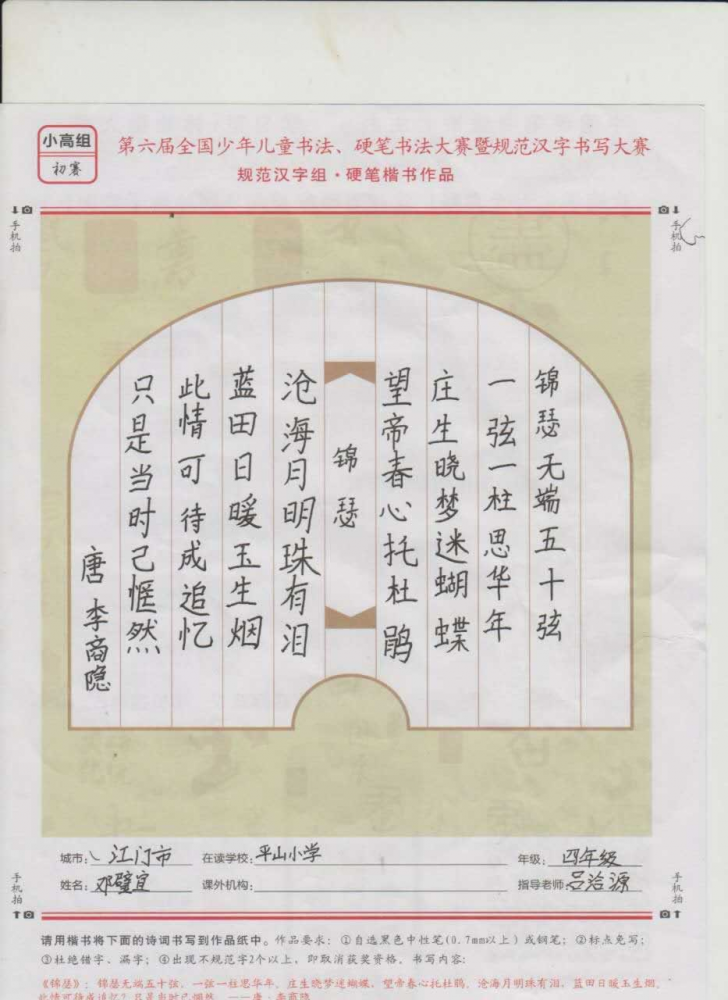 小高组
初赛
第六届全国少年儿童书法、硬笔书法大赛暨规范汉字书写大赛
规范汉字组·硬笔楷书作品
手机拍
手机拍
锦瑟无端五十弦
一弦一柱思华年
庄生晓梦迷蝴蝶
望帝春心托杜鹃
锦瑟
沧海月明珠有泪
蓝田日暖玉生烟
此情可待成追忆
只是当时已惘然
唐 李商隐
城市: 江门市 在读学校: 平山小学 年级: 四年级
姓名: 邓璧宜 课外机构: 指导老师: 吕洽源
手机拍
手机拍
请用楷书将下面的诗词书写到作品纸中。作品要求：①自选黑色中性笔(0.7mm以上)或钢笔；②标点免写；
③杜绝错字、漏字；④出现不规范字2个以上，即取消获奖资格。书写内容：
《锦瑟》：锦瑟无端五十弦，一弦一柱思华年。庄生晓梦迷蝴蝶，望帝春心托杜鹃。沧海月明珠有泪，蓝田日暖玉生烟。
此情可待成追忆？只是当时已惘然。——唐·李商隐